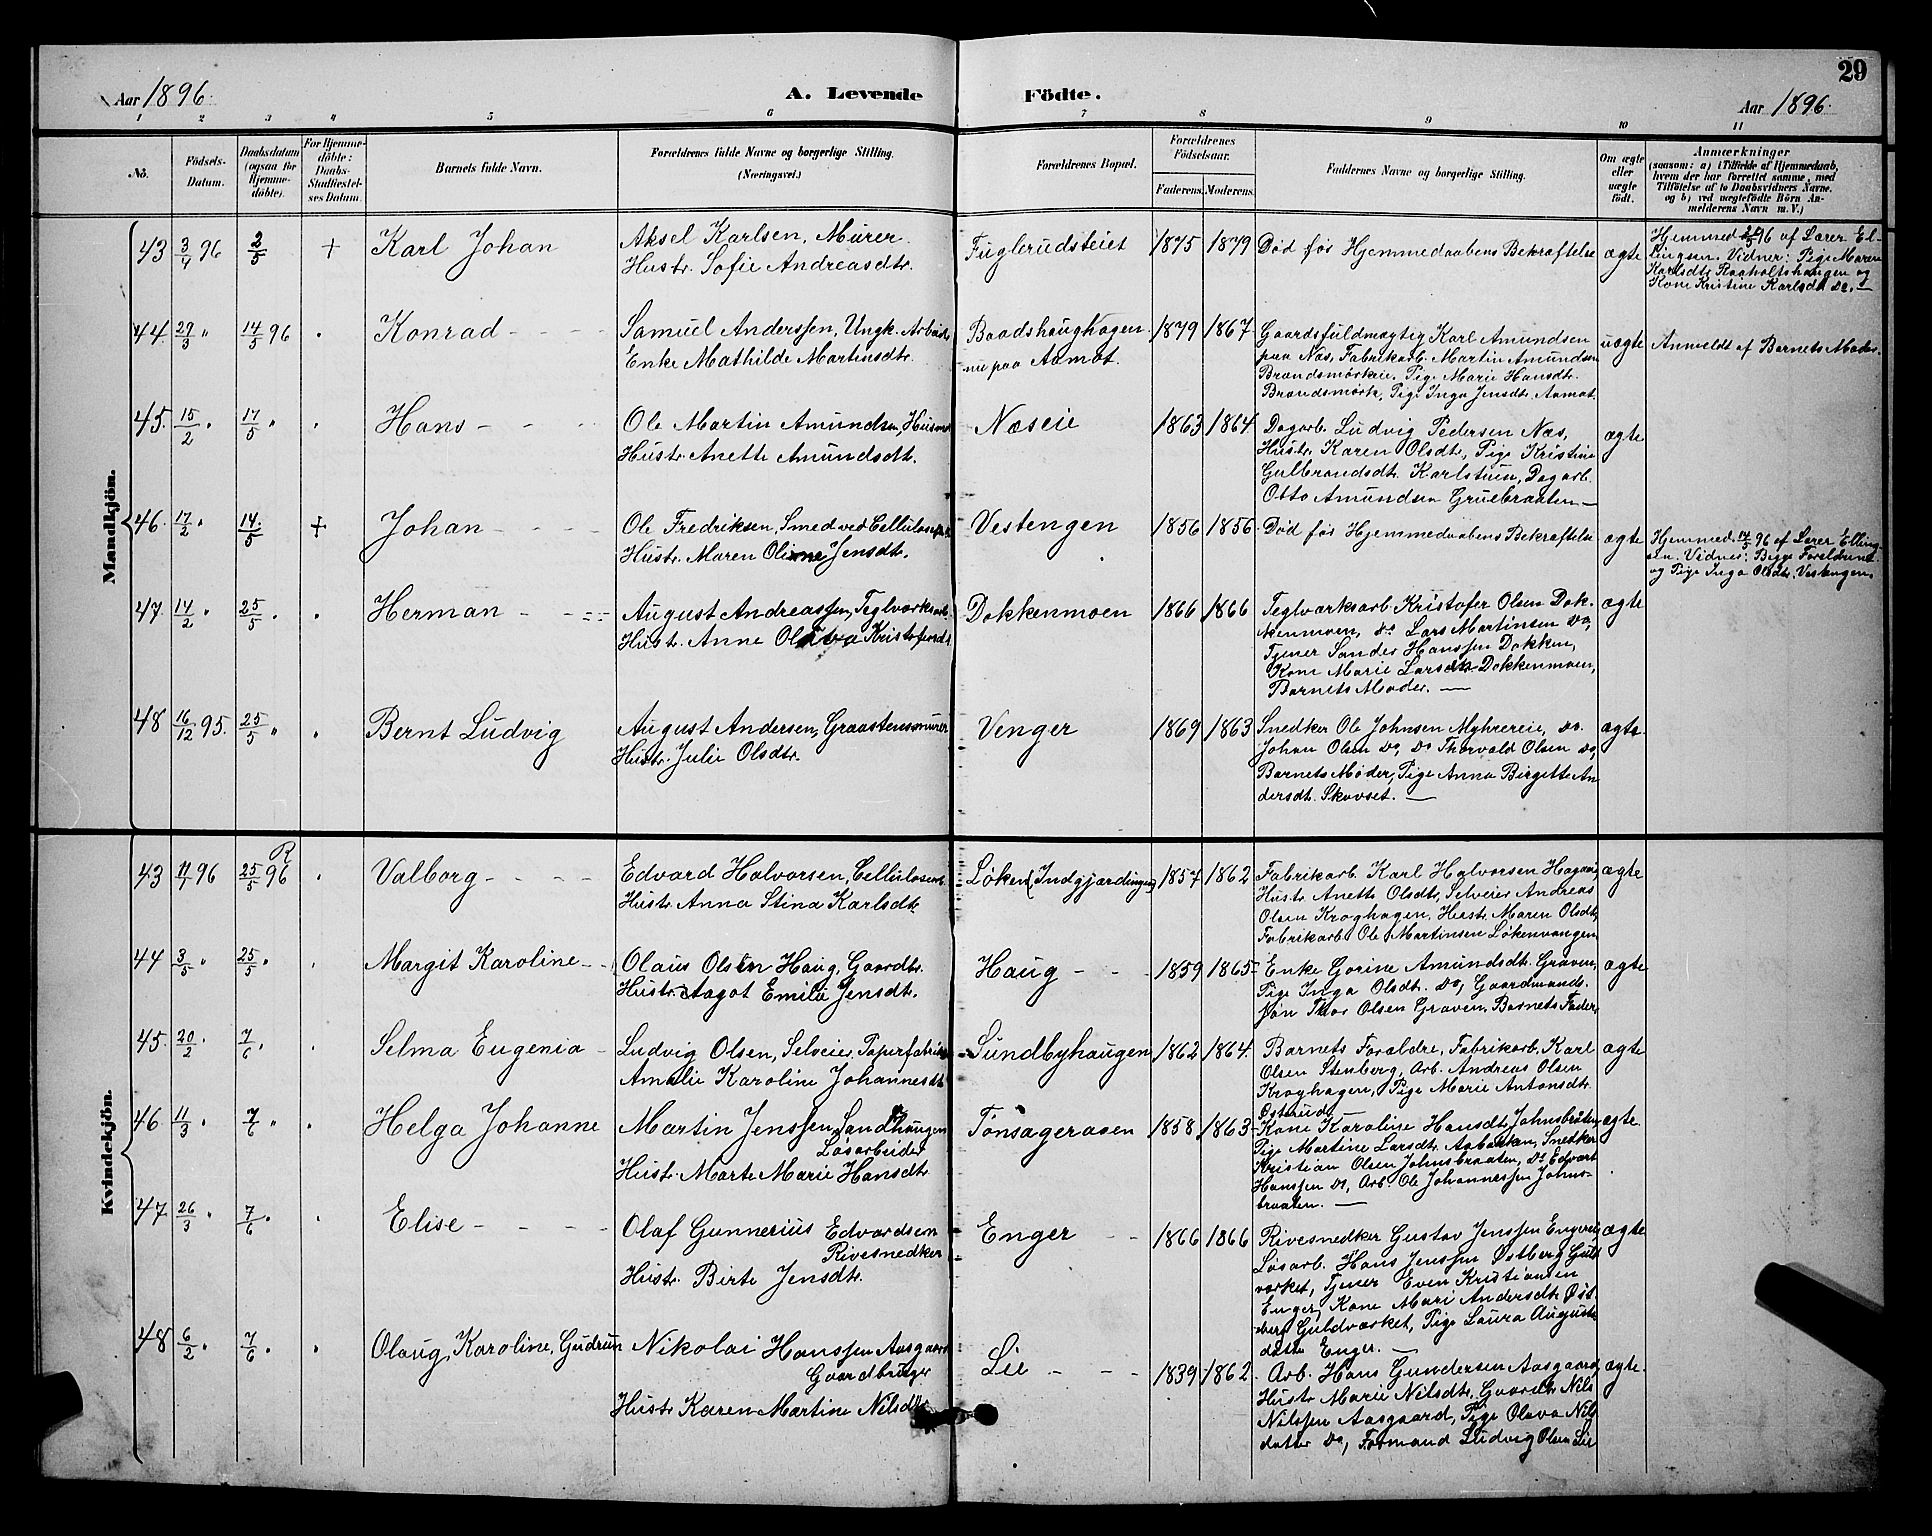 29
Aar 1896.
A. Levende Födte.
Aar 1896.
1 2 3 4 5 6 7 8 9 10 11
No.
Födsels-Datum.
Daabsdatum (ogsaa for Hjemme-döbte).
For Hjemme-döbte: Daabs-Stadfæstel-ses Datum.
Barnets fulde Navn.
Forældrenes fulde Navne og borgerlige Stilling. (Næringsvei.)
Forældrenes Bopæl.
Forældrenes Födselsaar.
Faderens. Moderens.
Faddernes Navne og borgerlige Stilling.
Om ægte eller uægte født.
Anmærkninger
(saasom: a) i Tilfælde af Hjemmedaab,
hvem der har forrettet samme, med
Tilföielse af to Daabsvidners Navne,
og b) ved uægtefödte Börn An-
melderens Navn m. V.)
Mandkjön.
43 3/4 96 2/5 + Karl Johan
Aksel Karlsen, Murer.
Hustr. Sofie Andreasdtr.
Fuglerudsteiet 1875 1879
Död för Hjemmedaabens Bekræftelse
ægte
Hjemmed. 2/5 96 af Lærer El-
lingsen. Vidner: Pige Maren
Karlsdtr. Raaholtshaugen og
Kone Kristine Karlsdtr Do. —
44. 29/3 " 14/5 96 Konrad
Samuel Anderssen, Ungk. Arbeider
Enke Mathilde Martinsdtr.
Baadshaughagen
nu paa Aamot.
1879 1867
Gaardsfuldmægtig Karl Amundsen
paa Næs, Fabrikarb. Martin Amundsen
Brændsmörkeie, Pige Marie Hansdtr.
Brændsmörk, Pige Inga Jensdtr. Aamot.
uægte
Anmeldt af Barnets Moder.
45. 15/2 " 17/5 " Hans
Ole Martin Amundsen, Husmd
Hustr. Anette Amundsdtr.
Næseie 1863 1864
Dagarb. Ludvig Pedersen Næs,
Hustr. Karen Olsdtr, Pige Kristine
Gulbrandsdtr Karlstuen, Dagarb.
Otto Amundsen Gruebraaten —
ægte
46. 17/2 " 14/5 + Johan
Ole Fredriksen, Smed ved Cellulosefab.
Hustr. Maren Oline Jensdtr.
Vestengen 1856 1856
Död för Hjemmedaabens Bekræftelse
ægte
Hjemmed. 14/5 96 af Lærer Elling-
sen. Vidner: Begge Forældrene
og Pige Inga Olsdtr, Vestengen
47. 14/2 " 25/5 " Herman
August Andreassen, Teglværksarb.
Hustr. Anne Oliva Kristofersdtr
Dokkenmoen 1866 1866
Teglværksarb. Kristofer Olsen Dok-
kenmoen, Do Lars Martinsen Do,
Tjener Sander Hanssen Dokken,
Kone Marie Larsdtr Dokkenmoen,
Barnets Moder. —
ægte
48 16/12 95. 25/5 " Bernt Ludvig
August Andersen, Graastensmurer
Hustr. Julie Olsdtr.
Venger 1869 1863
Snedker Ole Johnsen Myhrereie, Do.
Johan Olsen Do, Do Thorvald Olsen Do,
Barnets Moder, Pige Anna Birgitte An
dersdt. Skovset. —
ægte.
Kvindekjön.
43 11/1 96 25/5 96 R Valborg
Edvard Halvorsen, Cellulosearb.
Hustr Anna Stina Karlsdtr.
Løken (Indgjærdingen) 1857 1862
Fabrikarb. Karl Halvorsen Hagaei,
Hustr Anette Olsdtr, Selveier Andreas
Olsen Kroghagen, Hustr. Maren Olsdtr,
Fabrikarb. Ole Martinsen Løkenvangen
ægte
44 3/5 " 25/5 " Margit Karoline
Olaus Olsen Haug, Gaardbr.
Hustr. Aagot Emilie Jensdtr.
Haug 1859 1865
Enke Gorine Amundsdtr. Graven,
Pige Inga Olsdtr. Do, Gaardmands-
sön Thor Olsen Graven, Barnets Fader
ægte
45. 20/2 " 7/6 " Selma Eugenia
Ludvig Olsen, Selveier, Papirfabrik
Amalie Karoline Johannesdtr
Sundbyhaugen 1862 1864
Barnets Forældre, Fabrikarb. Karl
Olsen Stenberg, Arb. Andreas Olsen
Kroghagen, Pige Marie Antonsdtr.
Østerud.
ægte
46 11/3 " 7/6 " Helga Johanne
Martin Jenssen Sandhaugen
Løsarbeider
Hustr Marte Marie Hansdtr
Tønsageraaen 1858 1863
Kone Karoline Hansdtr Johnsbraaten,
Pige Martine Larsdtr. Aabakken, Snedker
Kristian Olsen Johnsbraaten, Do Edvart
Hanssen Do, Arb. Ole Johannessen Johns-
braaten. —
ægte.
47. 26/3 " 7/6 " Elise
Olaf Gunnerius Edvardsen
Rivesnedker
Hustr. Birte Jensdtr.
Enger 1866 1866
Rivesnedker Gustav Jenssen Engereie,
Løsarb. Hans Jenssen Østberg Guld
værket, Tjener Even Kristiansen
Enger, Kone Mari Andersdtr. Øst-
berg Guldværket, Pige Laura Augusts
datter Enger. —
ægte
48 6/2 " 7/6 " Olaug, Karoline, Gudrun
Nikolai Hanssen Aasgaard
Gaardbruger
Hustr Karen Martine Nilsdtr
Lie 1839 1862
Arb. Hans Gundersen Aasgaard,
Hustr Marie Nilsdtr, Gaardbr Nils
Nilssen Aasgaard, Pige Olava Nils
datter Do, Formand Ludvig Olsen Lie
ægte.